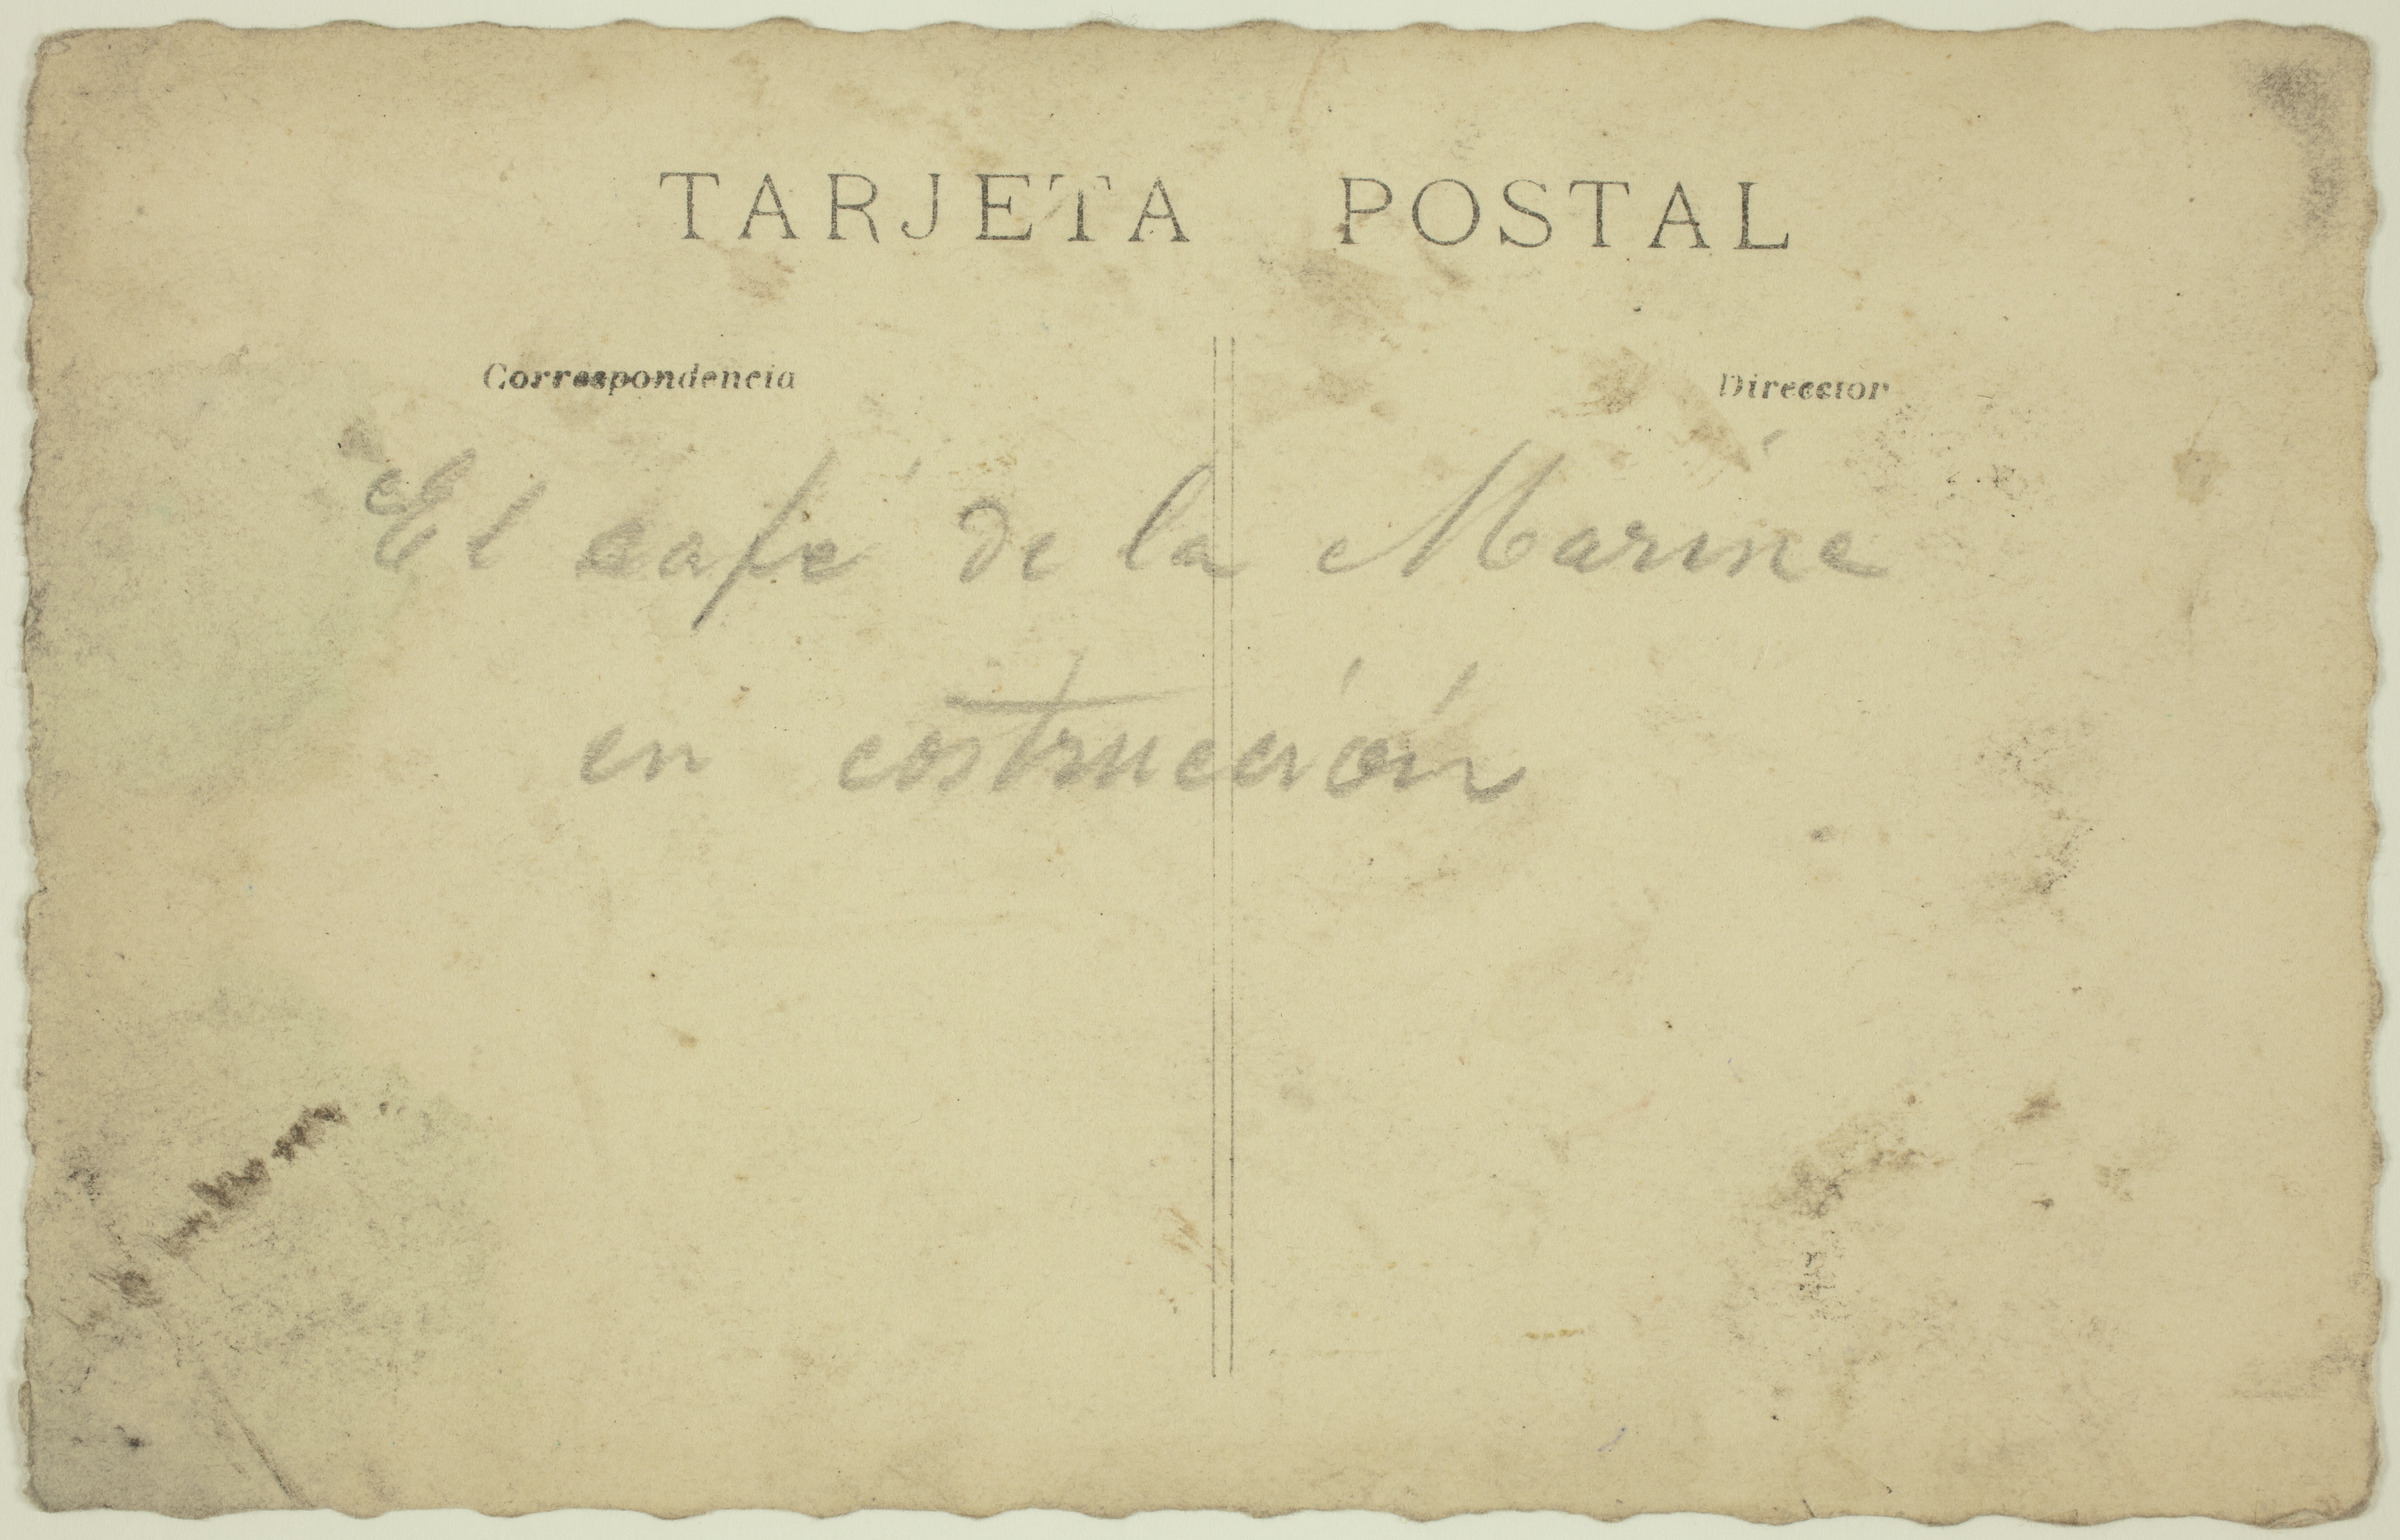 TARJETA POSTAL
Correspondencia
Direccion
El café de la Marine
en costrución